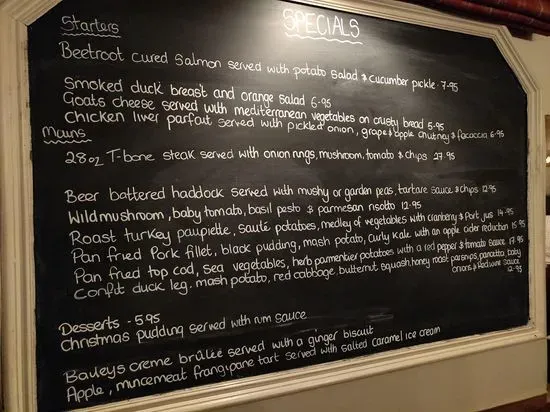 SPECIALS
Starters
Beetroot cured Salmon served with potato salad & cucumber pickle . 7.95
Smoked duck breast and orange salad 6.95
Goats cheese served with mediterranean vegetables on crusty bread 5.95
Chicken liver parfait served with pickled onion, grape & apple chutney & focaccia 6.95
Mains
28oz T-bone steak served with onion rings, mushroom, tomato & chips 27.95
Beer battered haddock served with mushy or garden peas, tartare sauce & chips 12.95
Wild mushroom, baby tomato, basil pesto & parmesan risotto 12.95
Roast turkey paupiette, sauté potatoes, medley of vegetables with cranberry & Port jus 14.95
Pan fried Pork fillet, black pudding, mash potato, curly kale with an apple cider reduction 15.95
Pan fried top cod, sea vegetables, herb parmentier potatoes with a red pepper & tomato sauce 17.95
Confit duck leg. mash potato, red cabbage, butternut squash, honey roast parsnips, pancetta, baby
onions & Red wine sauce
12.95
Desserts - 5.95
Christmas pudding served with rum sauce
Baileys creme brûlée served with a ginger biscuit
Apple, mincemeat frangipane tart served with salted caramel ice cream